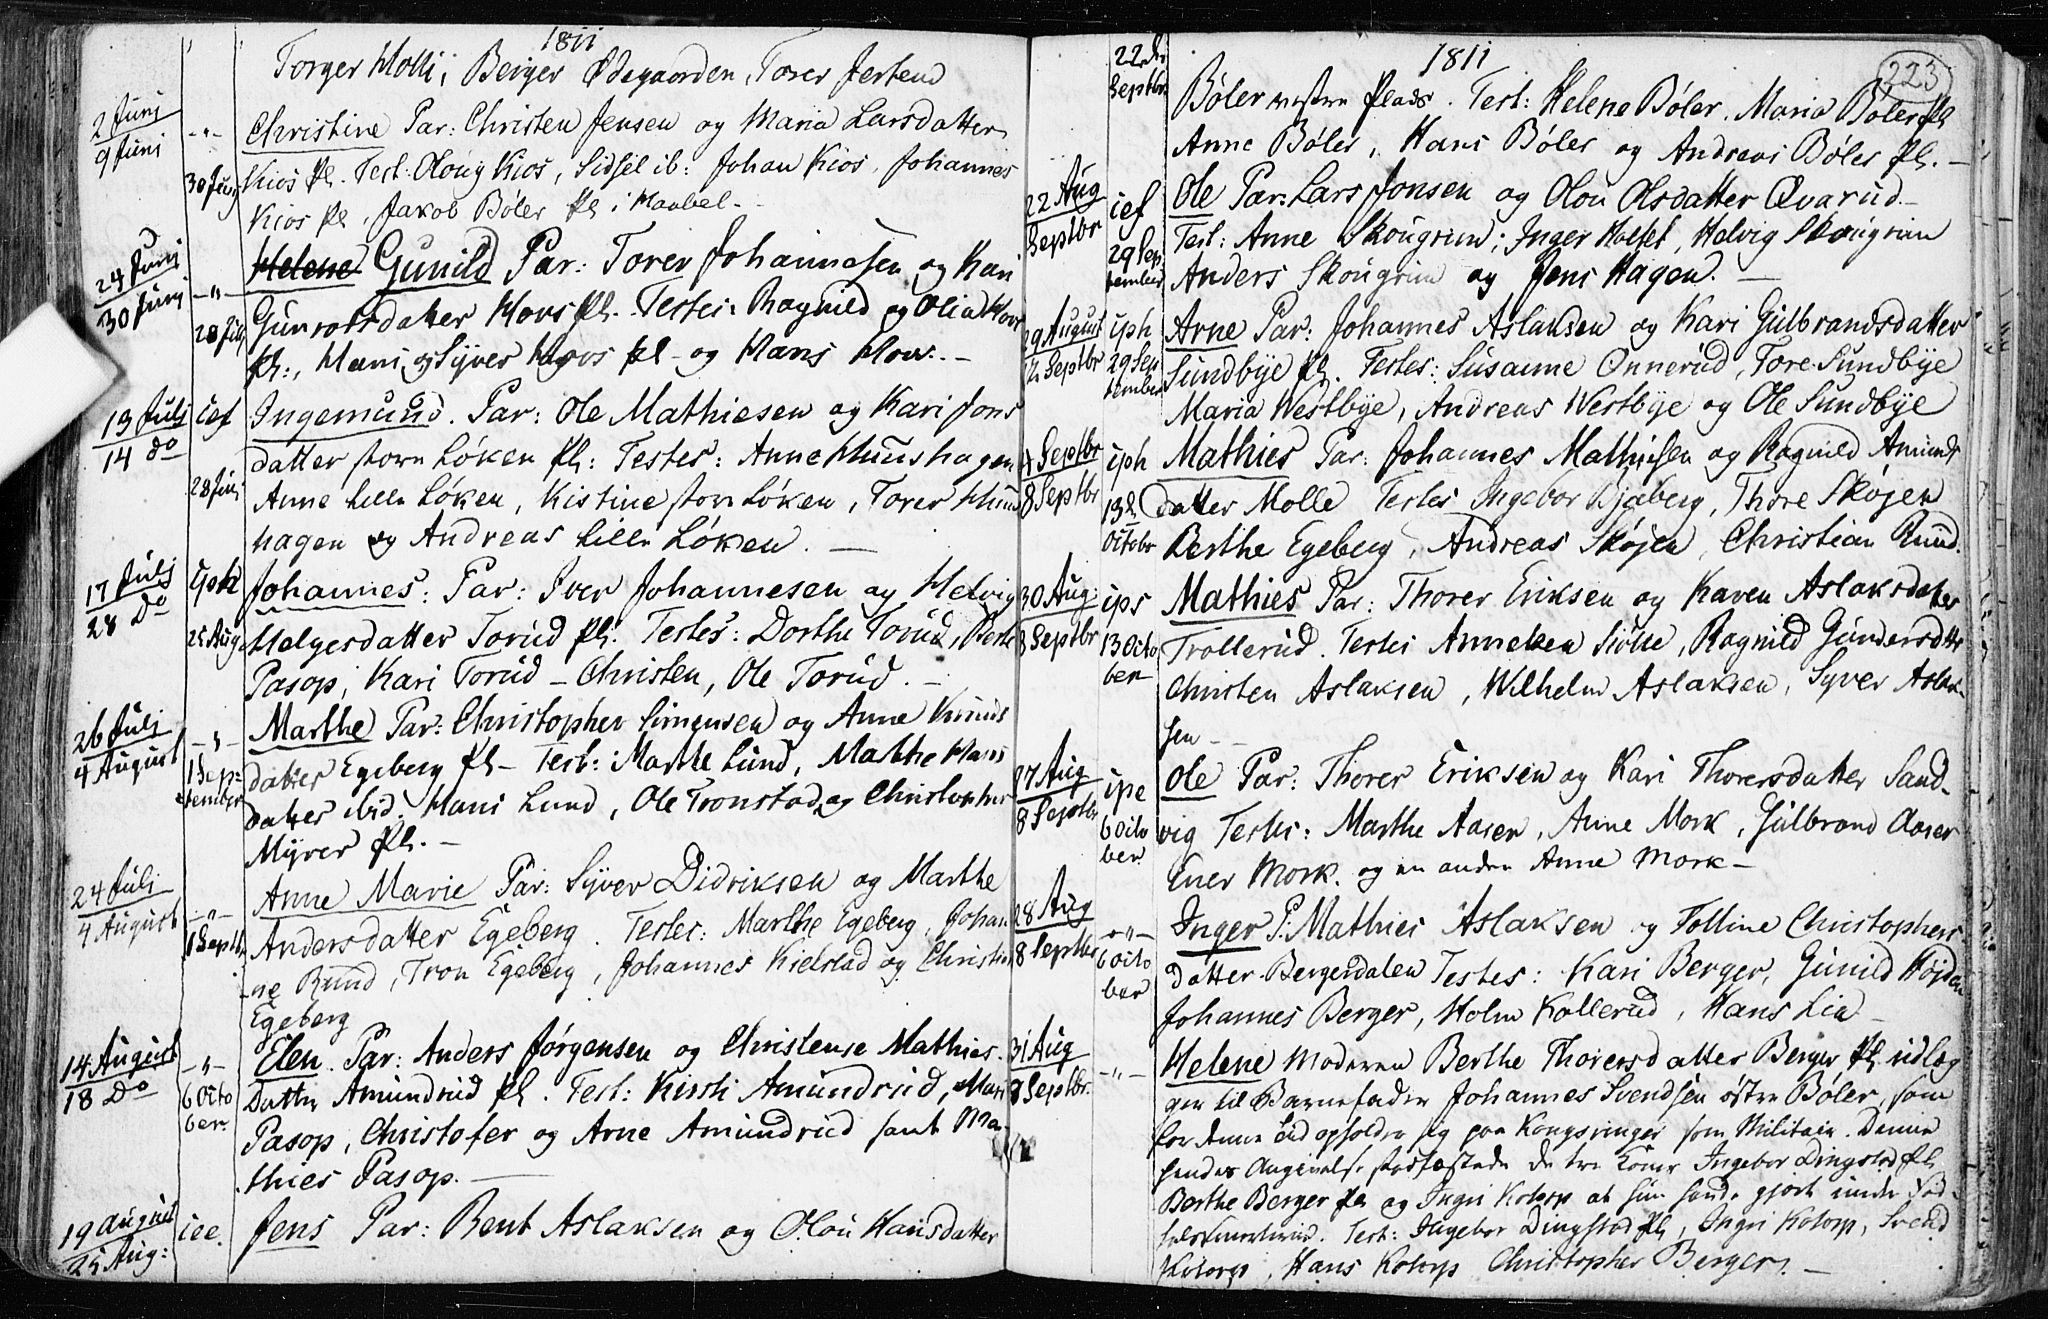 1811
Torger Molli, Berger Ødegaarden, Torer Jertend
2 Juni
9 Juni
Christine Par: Christen Jensen og Maria Larsdatter
30 Juni
Kios Pl. Test: Oloug Kios, Sidsel ib: Johan Kios, Johannes
Kios Pl, Jakob Bøler Pl i Haabel.
24 Juni
30 Juni
Helene Gunild Par: Torer Johannesen og Kari
28 Juli
Gunvorsdatter Hovs Pl. Testes: Ragnild og Olia Hovs
Pl:, Hans og Syver Hovs Pl og Hans Hov. -
13 Juli
14 do
ief
Ingemund. Par: Ole Mathiesen og Kari Jons
datter store Løken Pl: Testes: Anne Huushagen
28 Juli
Anne lille Løken, Kistine store Løken, Torer Huus
hagen og Andreas lille Løken. —
17 Juli
28 Do
iph
Johannes: Par: Iver Johannesen og Helvig
25 Aug
Helgesdatter Torud Pl: Testes: Dorthe Torud, Berte
Pasop, Kari Torud - Christen, Ole Torud. -
26 Juli
4 August
-"-
Marthe Par: Christopher Simensen og Anne Knuds
1 Sep-
tember
datter Egeberg Pl - Test: Marthe Lund, Marthe Hans
datter ibid. Hans Lund, Ole Tronstad og Christopher
Myrer Pl. -
24 Juli
4 August
-"-
Anne Marie Par: Syver Didriksen og Marthe
1 Septb.
Andersdatter Egeberg. Testes: Marthe Egeberg, Johan
ne Rund, Tron Egeberg, Johannes Kielstad og Christian
Egeberg
14 August
18 Do
-"-
Elen. Par: Anders Jørgensen og Christense Mathies-
6 Octo
ber
Datter Amundrud Pl. Test: Kirsti Amundrud, Mari
Pasop, Christofer og Arne Amundrud samt Ma-
thies Pasop. —
19 August
25 Aug:
iee.
Jens Par: Bent Aslaksen og Olou Hansdatter
22de
Septbr
1811
223
Bøler vestre Plads. Test: Helene Bøler, Maria Bøler Pl
Anne Bøler, Hans Bøler og Andreas Bøler Pl. -
22 Aug
Septbr
ief
29 Sep
tember
Ole Par: Lars Jonsen og Olou Olsdatter Qvarud -
Test: Anne Skougrim, Inger Holset, Helvig Skougrim
Anders Skougrim og Jens Hagen. —
29 August
Septbr
iph
29 Sep
tember
Arne Par: Johannes Aslaksen og Kari Gulbrandsdatter
Sundbye Pl. Testes: Susanne Onnerud, Tore Sundbye
Maria Westbye, Andreas Westbye og Ole Sundbye
4 Septbr
8 Septbr
iph
13de
Octobr
Mathies Par: Johannes Mathiesen og Ragnild Amunds
datter Molle Testes Ingebor Bjøberg, Thore Skøjen
Berthe Egeberg, Andreas Skøjen, Christian Rund.
30 Aug:
8 Septbr
ips
13 Octo
ber
Mathies Par: Thorer Eriksen og Karen Aslaksdatter
Trollerud. Testes Anneken, Ragnild Gundersdttr
Christen Aslaksen, Wilhelm Aslaksen, Syver Aslak-
sen -
27 Aug
8 Septbr
ipe
6 Octo
ber
Ole Par: Thorer Eriksen og Kari Thorersdatter Sand-
vig Testes: Marthe Aasen, Anne Mork, Gulbrand Aasen
Ener Mork. og en anden Anne Mork -
28 Aug
8 Septbr
-"-
6 Octo
ber
Inger P: Mathies Aslaksen og Tolline Christophers-
datter Bergerdalen Testes: Kari Berger, Gunild Højden
Johannes Berger, Holm Kollerud, Hans Lia -
31 Aug
8 Septbr.
-"-
Helene Moderen Berthe Thorersdatter Berger Pl udlæg
ger til Barnefader Johannes Svendsen østre Bøler, som
for denne Tid opholder sig paa Kongsvinger som Militair. Denne
hendes Angivelse stadfæstede de tre Koner Ingebor Dingstad Pl
Berthe Berger Pl og Ingri Kotorp at hun havde gjort under Fød-
selssmerterne. Test: Ingebor Dingstad Pl, Ingri Kotorp, Svend
Kotorp, Hans Kotorp Christopher Berger. -